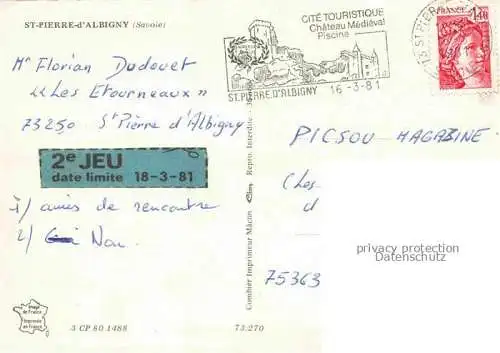 ST-PIERRE-d'ALBIGNY (Savoie)
Mr Florian Dudouet
"Les Etourneaux"
73250 St Pierre d'Albigny
2e JEU
date limite 18-3-81
1/ amies de rencontre
2/ Non
Image
de France
Imprimée
en France
3 CP 80 1488
73.270
Combier Imprimeur Mâcon
Repro. Interdite
CITÉ TOURISTIQUE
Château Médiéval
Piscine
ST.PIERRE.D'ALBIGNY
16-3-81
1,40
PICSOU MAGAZINE
75363
privacy protection
Datenschutz